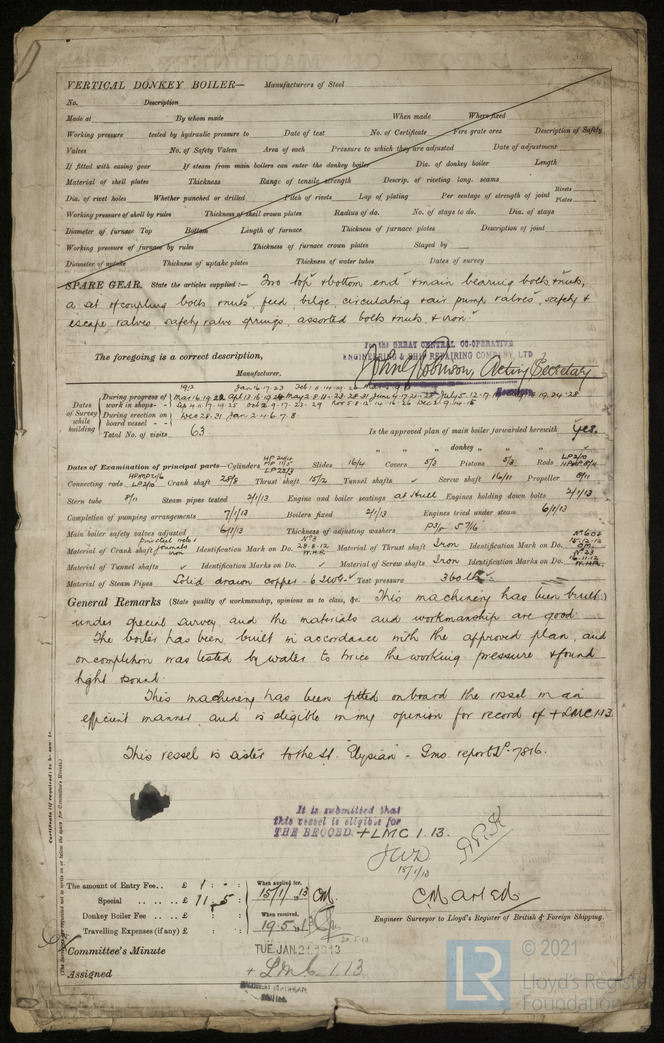 VERTICAL DONKEY BOILER— Manufacturers of Steel
No. Description
Made at By whom made When made Where fixed
Working pressure tested by hydraulic pressure to Date of test No. of Certificate Fire grate area Description of Safety
Valves No. of Safety Valves Area of each Pressure to which they are adjusted Date of adjustment
If fitted with easing gear If steam from main boilers can enter the donkey boiler Dia. of donkey boiler Length
Material of shell plates Thickness Range of tensile strength Descrip. of riveting long. seams
Dia. of rivet holes Whether punched or drilled Pitch of rivets Lap of plating Per centage of strength of joint Rivets Plates
Working pressure of shell by rules Thickness of shell crown plates Radius of do. No. of stays to do. Dia. of stays
Diameter of furnace Top Bottom Length of furnace Thickness of furnace plates Description of joint
Working pressure of furnace by rules Thickness of furnace crown plates Stayed by
Diameter of uptake Thickness of uptake plates Thickness of water tubes Dates of survey
SPARE GEAR. State the articles supplied:— Two top & bottom end & main bearing bolts & nuts,
a set of coupling bolts & nuts, feed bilge, circulating & air pump valves, safety &
escape valves, safety valve springs, assorted bolts & nuts & iron.
For the GREAT CENTRAL CO-OPERATIVE
ENGINEERING & SHIP REPAIRING COMPANY, LTD
The foregoing is a correct description,
John Robinson, Acting Secretary
Manufacturer.
Dates of Survey while building
During progress of work in shops - -
During erection on board vessel - - - Dec 28. 31 Jan 2. 4. 6. 7. 8
Total No. of visits 63
Is the approved plan of main boiler forwarded herewith Yes.
" " " donkey " " "
Dates of Examination of principal parts—Cylinders Slides 16/4 Covers 5/3 Pistons 5/3 Rods
Connecting rods Crank shaft 28/8 Thrust shaft 15/2 Tunnel shafts ✓ Screw shaft 16/11 Propeller 8/11
Stern tube 8/11 Steam pipes tested 2/1/13 Engine and boiler seatings at Hull Engines holding down bolts 2/1/13
Completion of pumping arrangements 7/1/13 Boilers fixed 2/1/13 Engines tried under steam 6/1/13
Main boiler safety valves adjusted 6/1/13 Thickness of adjusting washers
Material of Crank shaft Identification Mark on Do. Material of Thrust shaft Iron Identification Mark on Do.
Material of Tunnel shafts ✓ Identification Marks on Do. ✓ Material of Screw shafts Iron Identification Marks on Do.
Material of Steam Pipes Solid drawn copper - 6 IWG ✓ Test pressure 360 lbs
General Remarks (State quality of workmanship, opinions as to class, &c. This machinery has been built
under special survey and the materials and workmanship are good
The boiler has been built in accordance with the approved plan, and
on completion was tested by water to twice the working pressure & found
tight & sound.
This machinery has been fitted onboard the vessel in an
efficient manner and is eligible in my opinion for record of + LMC 1.13.
This vessel is sister to the St. Elysian - Gms. report No. 7816.
It is submitted that
this vessel is eligible for
THE RECORD. + LMC 1.13.
J.W.D.
15/1/13
The amount of Entry Fee .. £ 1 : - :
Special .. .. .. £ 11 . 5 :
Donkey Boiler Fee .. .. £
Travelling Expenses (if any) £
When applied for, 15/1/13
When received, 19.5.13
Engineer Surveyor to Lloyd's Register of British & Foreign Shipping.
Committee's Minute TUE. JAN. 21 1913
Assigned + LMC 1.13
LR © 2021
Lloyd's Register
Foundation